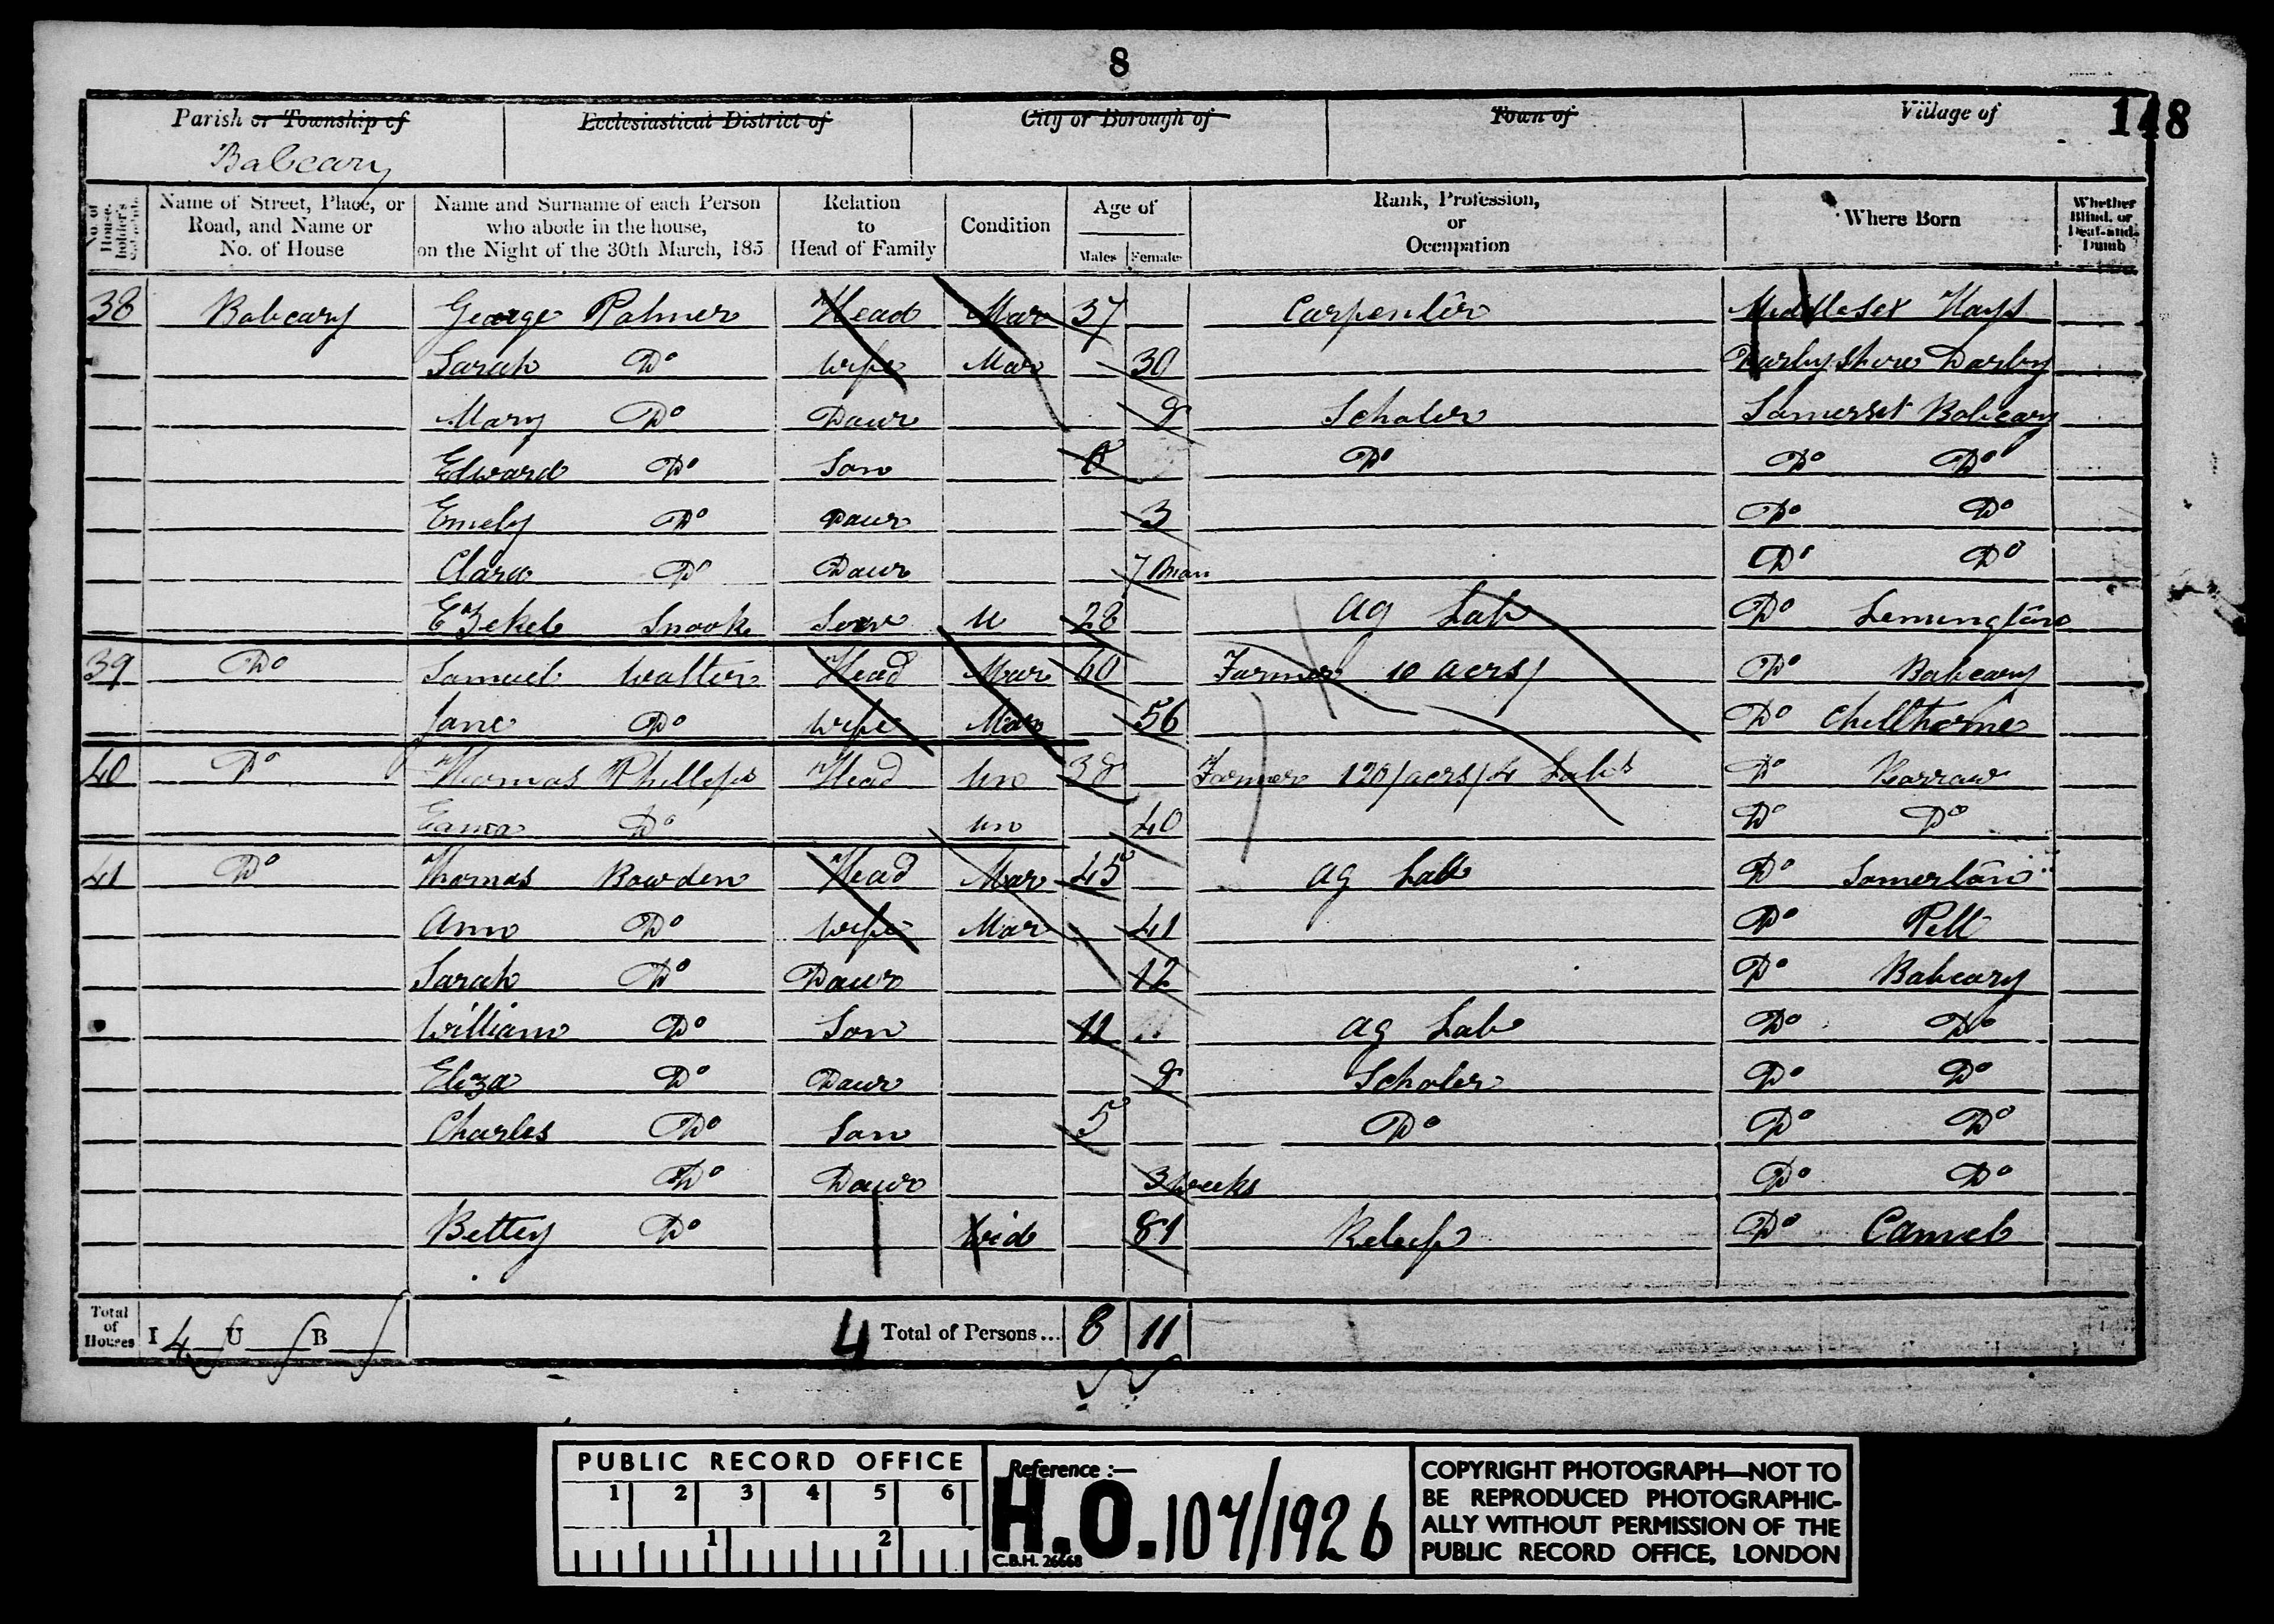 8
148
Parish or Township of Ecclesiastical District of City or Borough of Town of Village of
Babcary
No. of House-holder's Schedule Name of Street, Place, or Road, and Name or No. of House Name and Surname of each Person who abode in the house, on the Night of the 30th March, 185 Relation to Head of Family Condition Age of Males Females Rank, Profession, or Occupation Where Born Whether Blind, or Deaf-and-Dumb
38 Babcary George Palmer Head Mar 37 Carpenter Middlesex Hays
Sarah Do Wife Mar 30 Darbyshire Darby
Mary Do Daur 8 Scholer Somerset Babcary
Edward Do Son 6 Do Do Do
Emely Do Daur 3 Do Do
Clara Do Daur 7 Mon Do Do
Ezekel Snook Serv U 28 Ag Lab Do Lemington
39 Do Samuel Walter Head Mar 60 Farmer 10 acrs Do Babcary
Jane Do Wife Mar 56 Do Chillthorne
40 Do Thomas Phillips Head Un 38 Farmer 120 acrs 4 Labs Do Barrow
Do Un 40 Do Do
41 Do Thomas Bowden Head Mar 45 Ag Lab Do Somerton
Ann Do Wife Mar 41 Do Pill
Sarah Do Daur 12 Do Babcary
William Do Son 11 Ag Lab Do Do
Eliza Do Daur 8 Scholer Do Do
Charles Do Son 5 Do Do Do
Do Daur 3 weeks Do Do
Bettey Do Wid 81 Releif Do Camel
Total of Houses I 4 U B 4 Total of Persons... 8 11
PUBLIC RECORD OFFICE
1 2 3 4 5 6
1 2
Reference :—
H.O. 107/1926
C.B.H. 26668
COPYRIGHT PHOTOGRAPH—NOT TO
BE REPRODUCED PHOTOGRAPHIC-
ALLY WITHOUT PERMISSION OF THE
PUBLIC RECORD OFFICE, LONDON